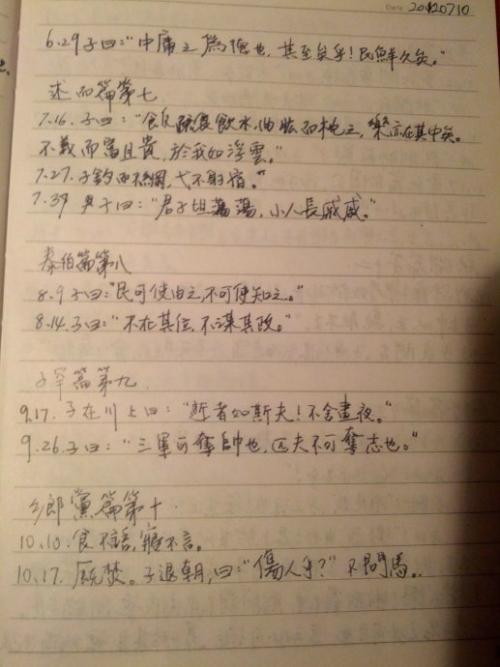 20120710
6.29子曰:“中庸之為德也,其至矣乎!民鮮久矣。”
述而篇第七
7.16.子曰:“飯疏食飲水,曲肱而枕之,樂亦在其中矣。
不義而富且貴,於我如浮雲。”
7.27.子釣而不綱,弋不射宿。”
7.37 子曰:“君子坦蕩蕩,小人長戚戚。”
泰伯篇第八
8.9子曰:“民可使由之,不可使知之。”
8.14.子曰:“不在其位,不謀其政。”
子罕篇第九
9.17.子在川上曰:“逝者如斯夫!不舍晝夜。”
9.26.子曰:“三軍可奪帥也,匹夫不可奪志也。”
鄉黨篇第十.
10.10.食不語,寢不言。
10.17.廄焚。子退朝,曰:“傷人乎?”不問馬。